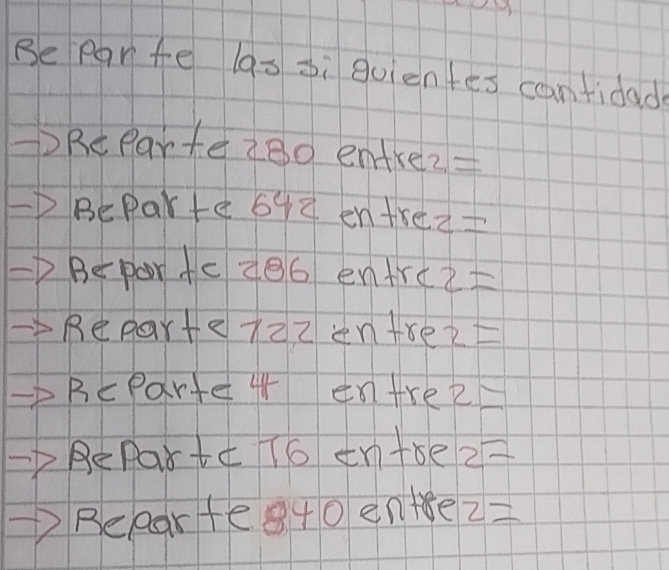 Reparte las siguientes cantidad
→ Reparte 280 entre 2 =
→ Reparte 642 entre 2 =
→ Reparte 286 entre 2 =
→ Reparte 722 entre 2 =
→ Reparte 4 entre 2 =
→ Reparte 76 entre 2 =
→ Reparte 840 entre 2 =